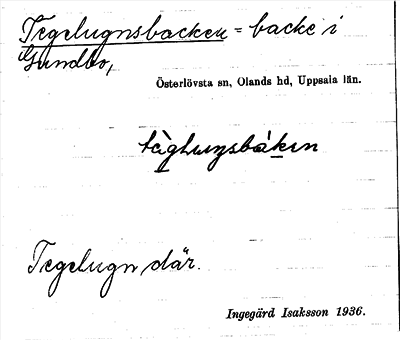 Tegelugnsbacken = backe i
Gundbo,
Österlövsta sn, Olands hd, Uppsala län.
tèglungsbáken
Tegelugn där.
Ingegärd Isaksson 1936.